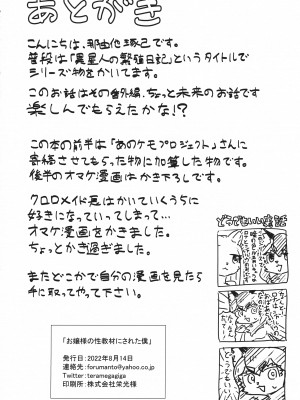 あとがき
こんにちは、那由他啄己です。
普段は「異星人の繁殖日記」というタイトルで
シリーズ物をかいてます。
このお話はその番外編、ちょっと未来のお話です
楽しんでもらえたかな!?
この本の前半は「あのケモプロジェクト」さんに
寄稿させてもらった物に加筆した物です。
後半のオマケ漫画はかき下ろしです。
クロロメイド君はかいていくうちに
好きになっていってしまって…
オマケ漫画をかきました。
ちょっとかき過ぎました。
またどこかで自分の漫画を見たら
手に取ってやって下さい。
どうでもいい話
「お嬢様の性教材にされた僕」
発行日:2022年8月14日
連絡先:forumanto@yahoo.co.jp
Twitter:teramegagiga
印刷所:株式会社栄光様